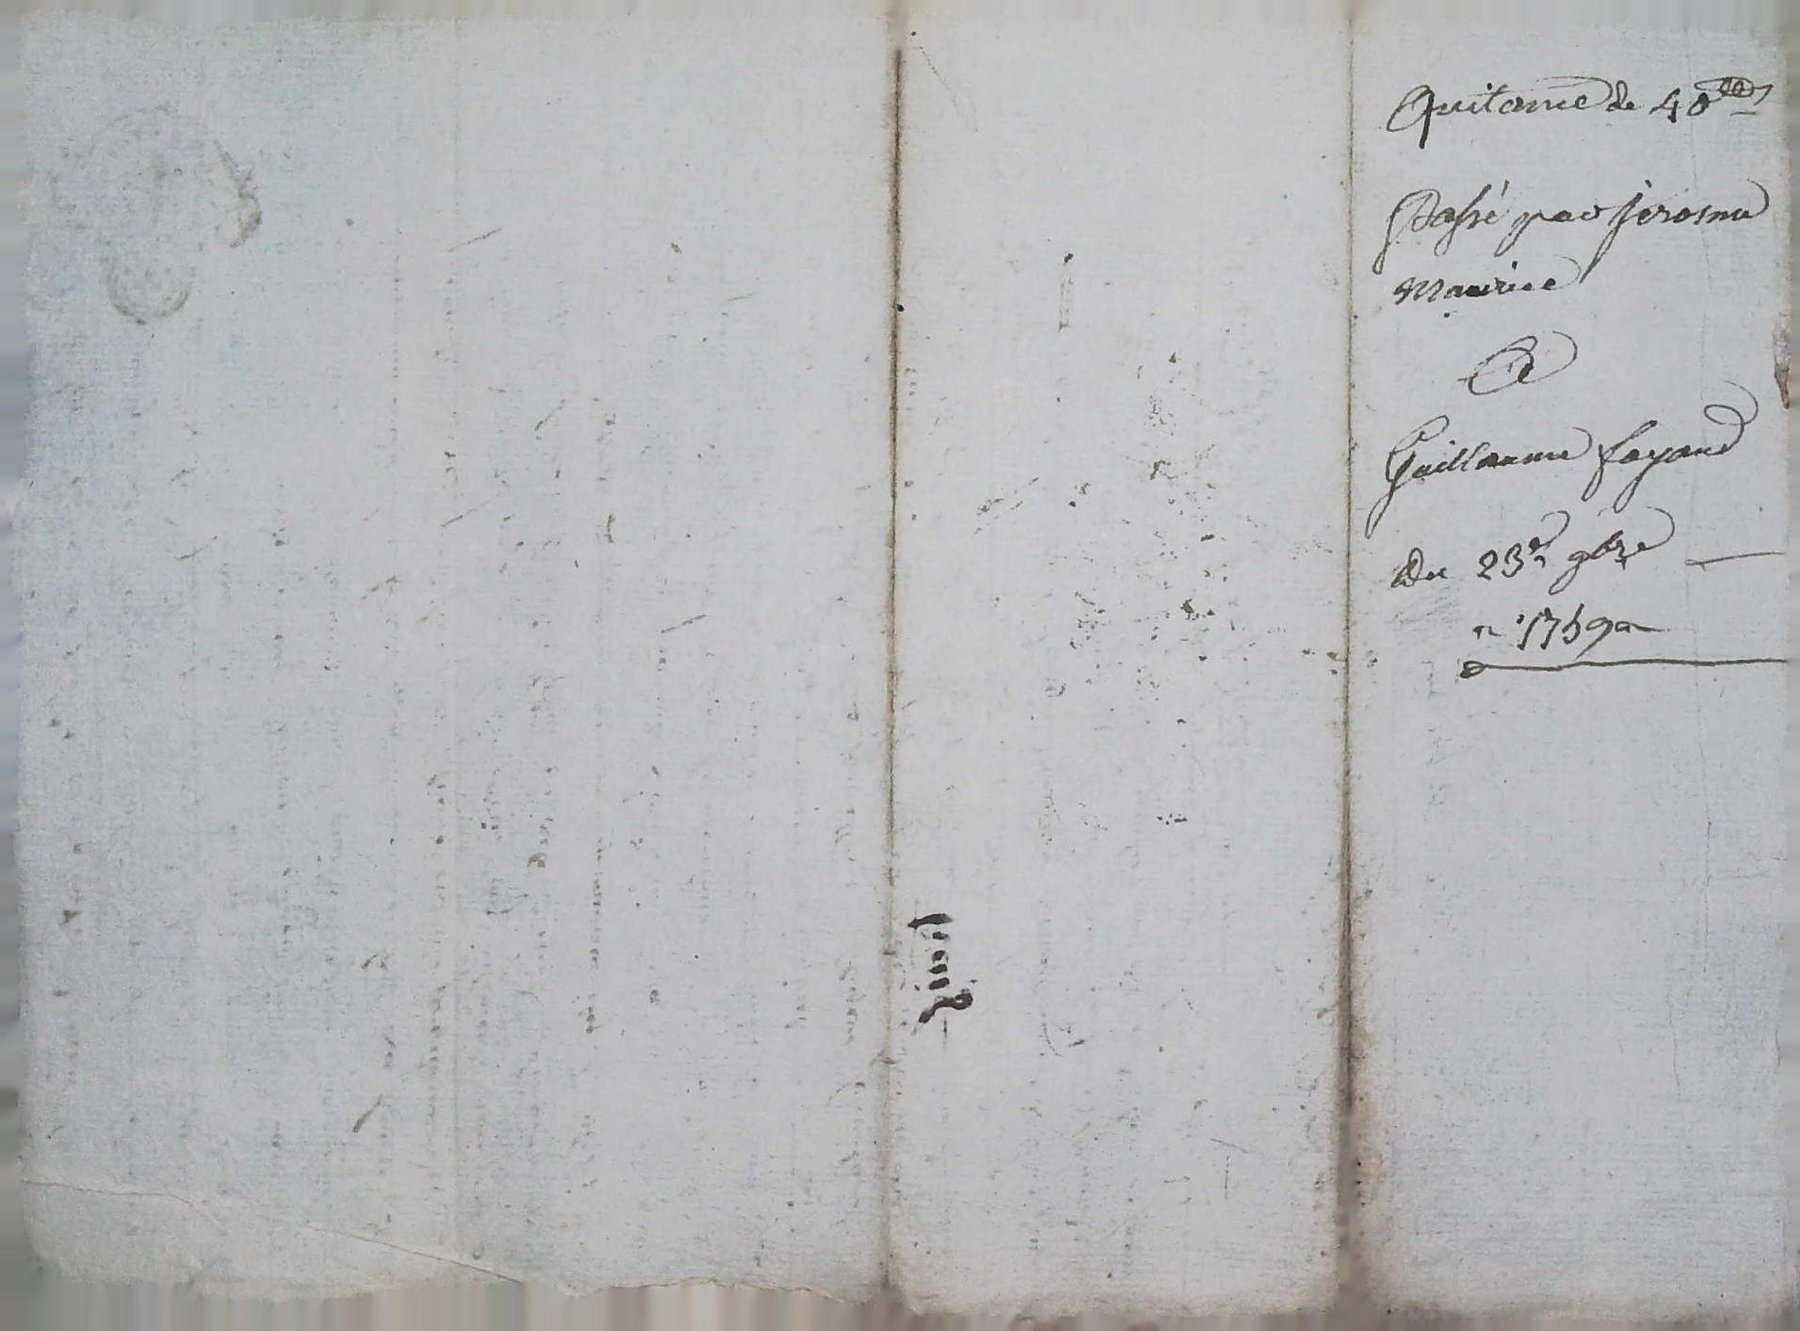 Quitance de 40ᵗᵗ
Passé par Jerosme
Maurice
A
Guillaume fayand
Du 23ᵉ 9bre
1759